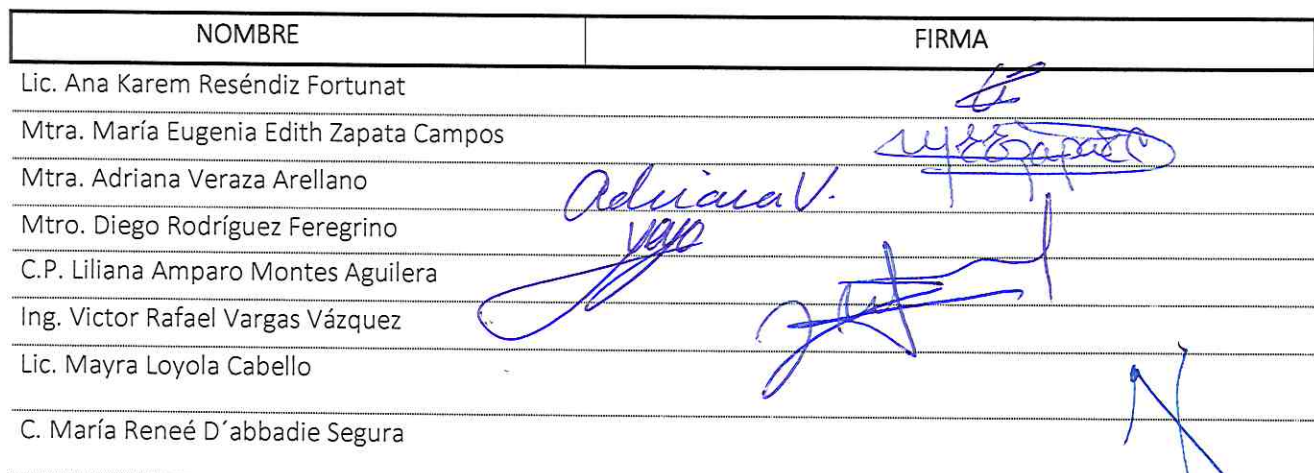 NOMBRE FIRMA
Lic. Ana Karem Reséndiz Fortunat
Mtra. María Eugenia Edith Zapata Campos
Mtra. Adriana Veraza Arellano Adriana V.
Mtro. Diego Rodríguez Feregrino
C.P. Liliana Amparo Montes Aguilera
Ing. Victor Rafael Vargas Vázquez
Lic. Mayra Loyola Cabello
C. María Reneé D´abbadie Segura